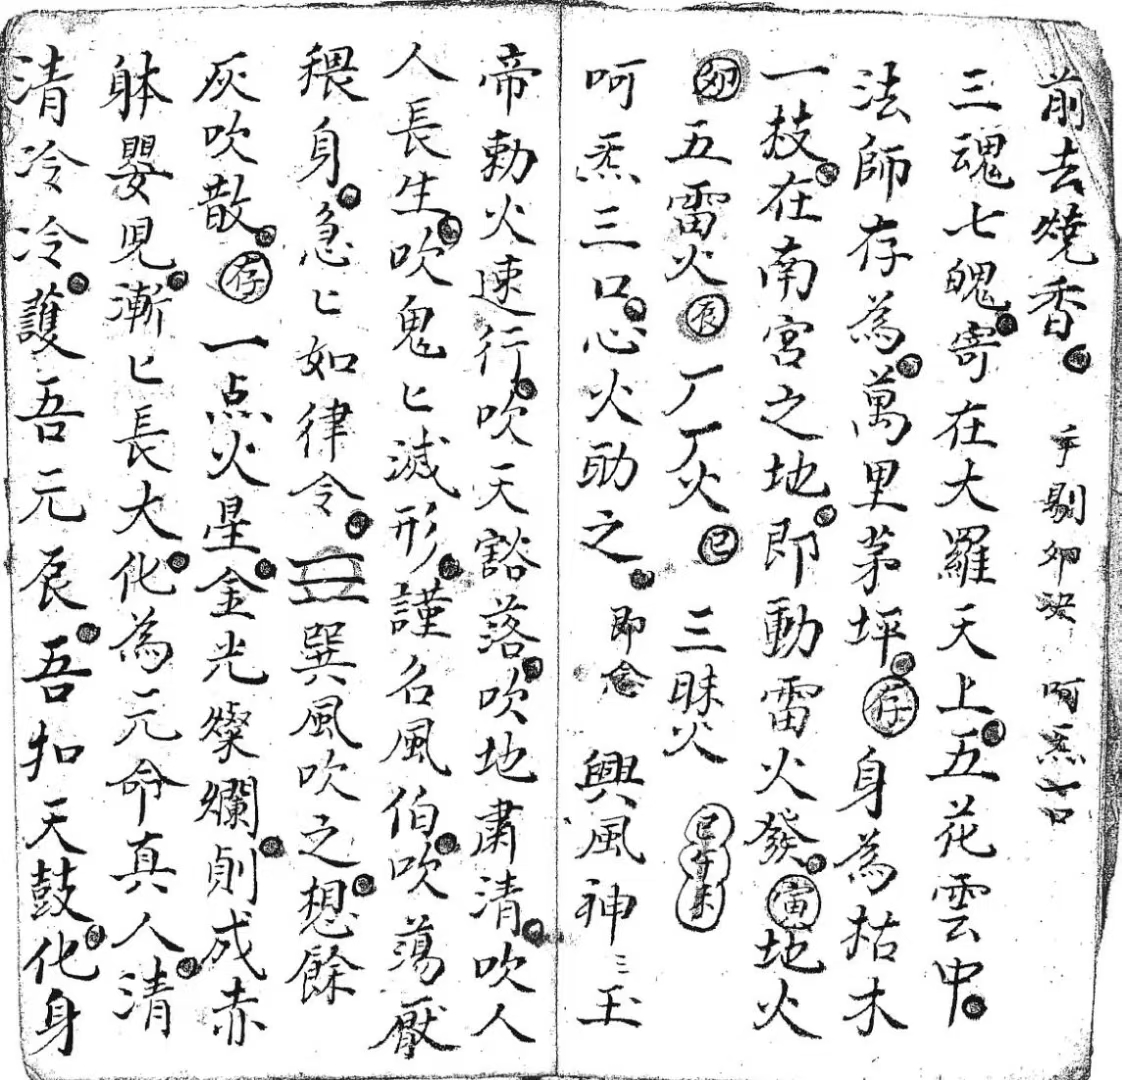 前去燒香 手剔卯決 呵炁七口
三魂七魄寄在大羅天上五花雲中
法師存為萬里茅坪存身為枯木
一枝在南宮之地即動雷火發寅地火
卯五雷火辰厂厂火巳三昧火巳午未
呵炁三口心火助之即念 興風神三玉
帝勅火速行吹天豁落吹地肅清吹人
人長生吹鬼匕滅形謹名風伯吹蕩厭
穢身急匕如律令巽風吹之想餘
灰吹散存一点火星金光燦爛則成赤
躰嬰兒漸匕長大化為元命真人清
清冷冷護吾元辰吾扣天鼓化身